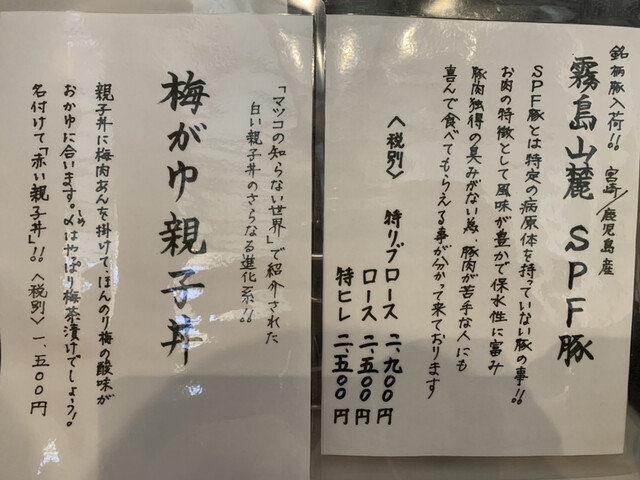 銘柄豚入荷!! 宮崎/鹿児島産
霧島山麓 SPF豚
SPF豚とは特定の病原体を持っていない豚の事!!
お肉の特徴として風味が豊かで保水性に富み
豚肉独得の臭みがない為、豚肉が苦手な人にも
喜んで食べてもらえる事が分かって来ております
〈税別〉 特リブロース 二、九〇〇円
ロース 二、五〇〇円
特ヒレ 二、五〇〇円
「マツコの知らない世界」で紹介された
白い親子丼のさらなる進化系!!
梅がゆ親子丼
親子丼に梅肉あんを掛けて、ほんのり梅の酸味が
おかゆに合います。〆はやっぱり梅茶漬けでしょう!
しめ
名付けて「赤い親子丼」!! 〈税別〉 一、五〇〇円